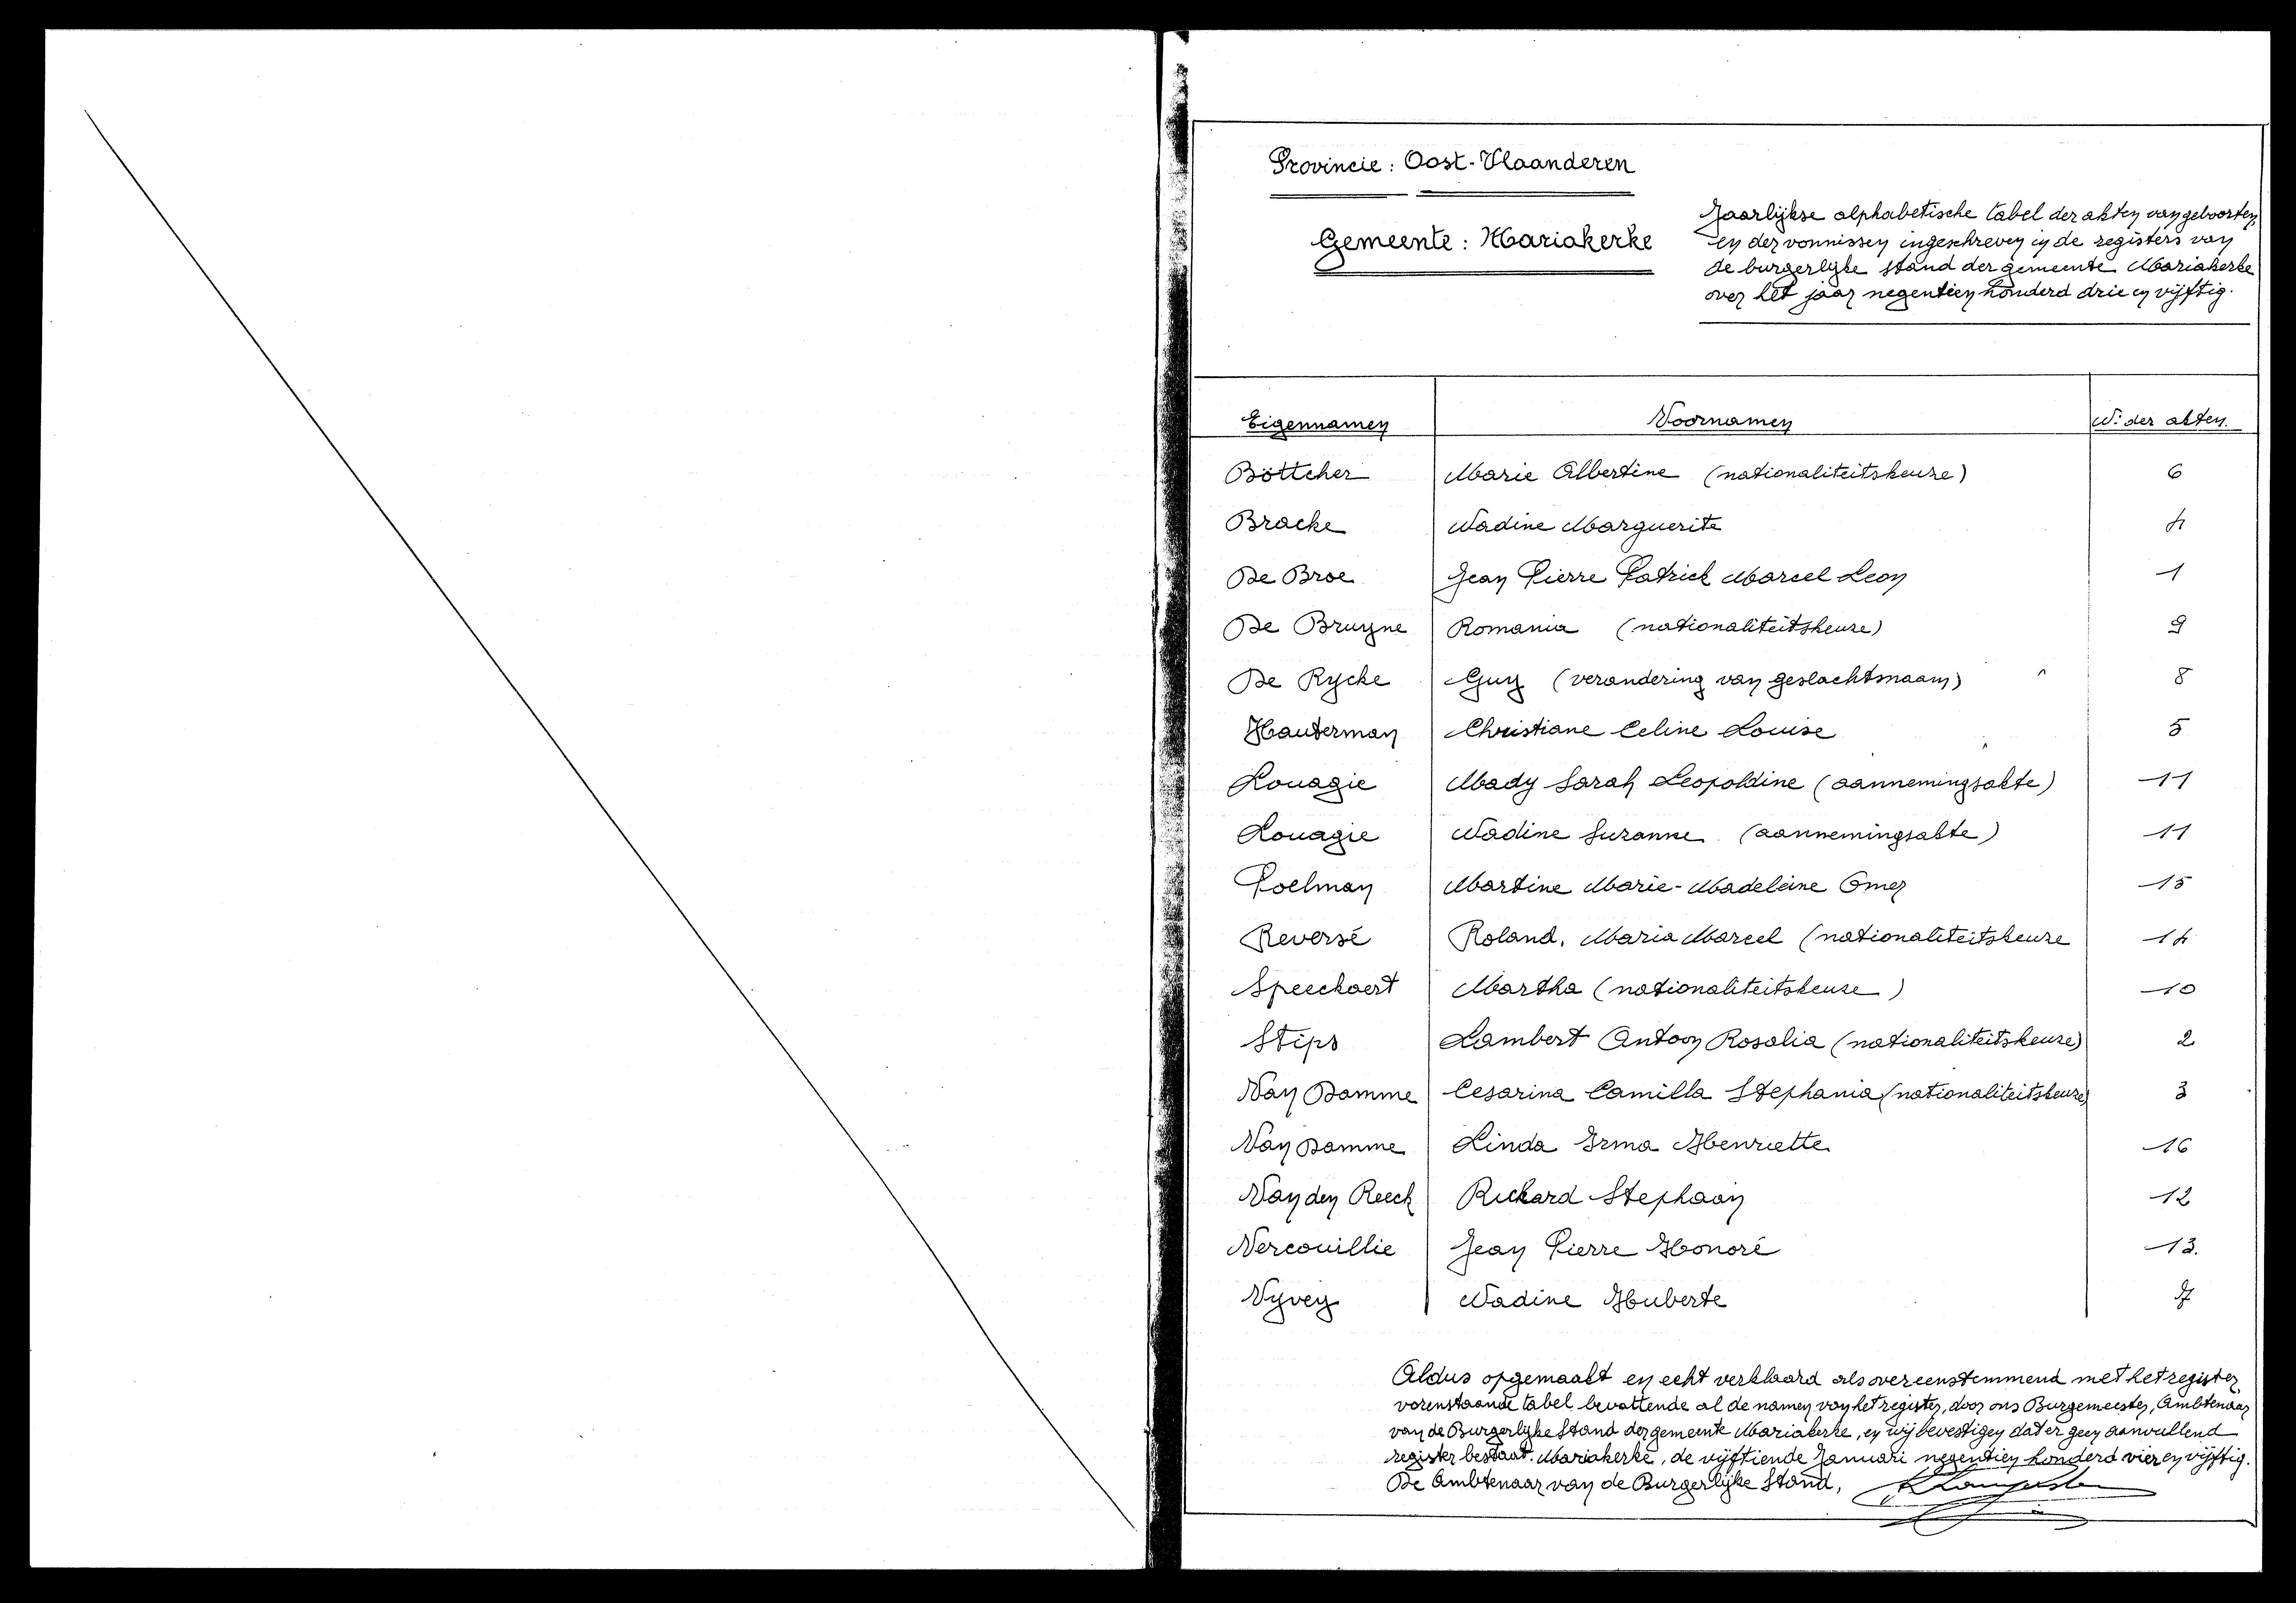 Provincie : Oost-Vlaanderen
Gemeente : Mariakerke
Jaarlijkse alphabetische tabel der akten van geboorten,
en der vonnissen ingeschreven in de registers van
de burgerlijke stand der gemeente Mariakerke
over het jaar negentien honderd drie en vijftig.
Eigennamen Voornamen N: der akten.
Böttcher Marie Albertine (nationaliteitskeuze) 6
Bracke Nadine Marguerite 4
De Broe Jean Pierre Patrick Marcel Leon 1
De Bruyne Romania (nationaliteitskeuze) 9
De Rycke Guy (verandering van geslachtsnaam) 8
Hauterman Christiane Celine Louise 5
Louagie Mady Sarah Leopoldine (aannemingsakte) 11
Louagie Nadine Suzanne (aannemingsakte) 11
Poelman Martine Marie-Madeleine Omer 15
Reversé Roland, Maria Marcel (nationaliteitskeuze 14
Speeckaert Martha (nationaliteitskeuze) 10
Stips Lambert Antoon Rosalia (nationaliteitskeuze) 2
Van Damme Cesarina Camilla Stephania (nationaliteitskeuze) 3
Van Damme Linda Irma Henriette 16
Van den Reeck Richard Stephaan 12
Vercouillie Jean Pierre Honoré 13.
Vyvey Nadine Huberte 7
Aldus opgemaakt en echt verklaard als overeenstemmend met het register,
vorenstaande tabel bevattende al de namen van het register, door ons Burgemeester, Ambtenaar
van de Burgerlijke Stand der gemeente Mariakerke, en wij bevestigen dat er geen aanvullend
register bestaat. Mariakerke, de vijftiende Januari negentien honderd vier en vijftig.
De Ambtenaar van de Burgerlijke Stand,